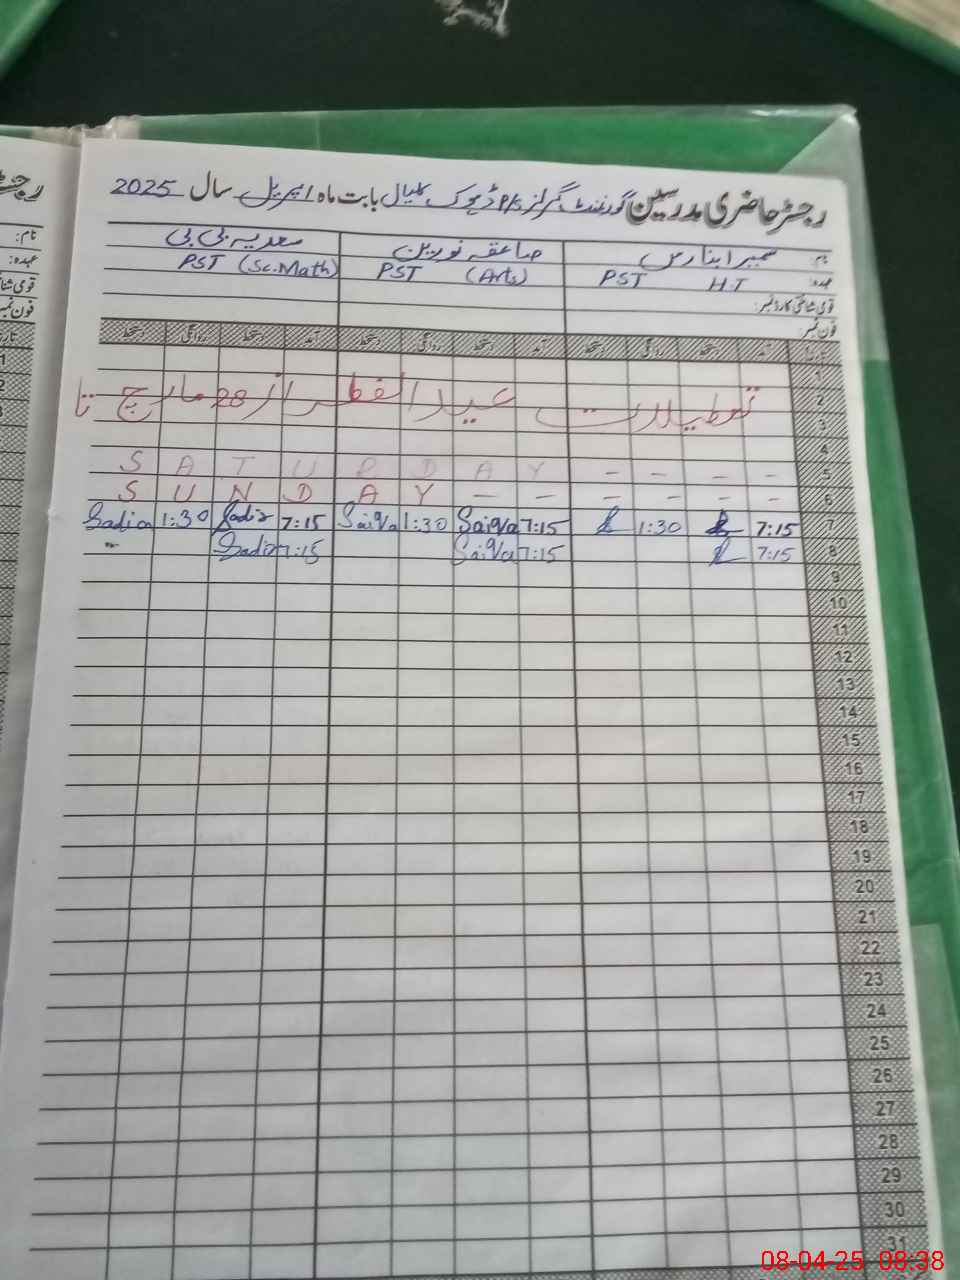 رجسٹر حاضری مدرسین گورنمنٹ گرلز P/S ڈھوک بابت ماہ اپریل سال 2025
نام: سمیرا بنارس صاعقہ نورین سعدیہ بی بی
عہدہ: PST H.T PST (Arts) PST (Sc.Math)
قومی شناختی کارڈ نمبر:
فون نمبر:
تاریخ آمد دستخط روانگی دستخط آمد دستخط روانگی دستخط آمد دستخط روانگی دستخط
1
2 تعطیلات عید الفطر از 28 مارچ تا
3
4
5 S A T U R D A Y - - - -
6 S U N D A Y - - - - - -
7 7:15 1:30 7:15 Saiqa 1:30 Saiqa 7:15 Sadia 1:30 Sadia
8 7:15 7:15 Saiqa 7:15 Sadia
9
10
11
12
13
14
15
16
17
18
19
20
21
22
23
24
25
26
27
28
29
30
31
08-04-25 08:38